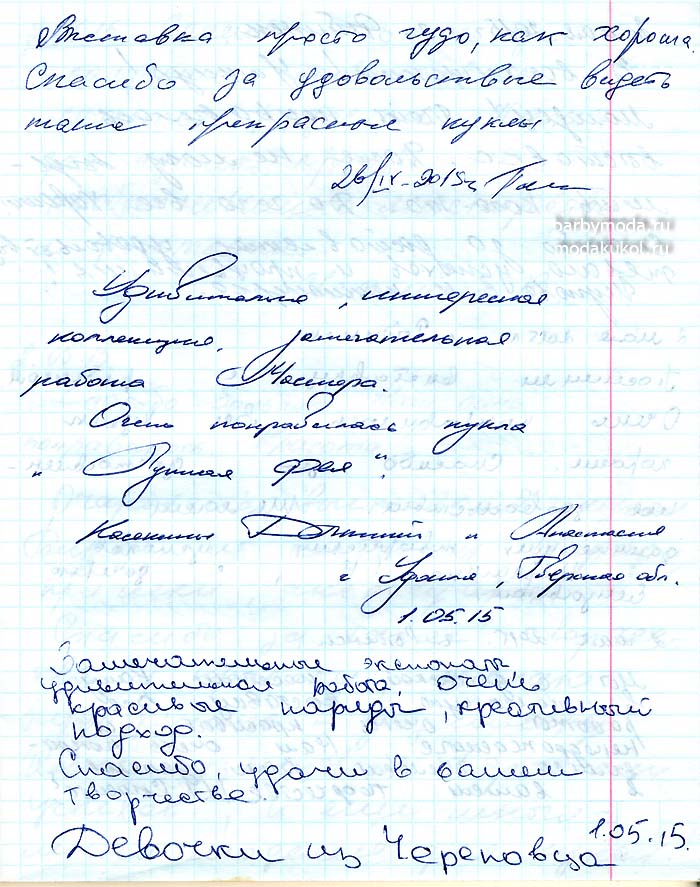 Выставка просто чудо, как хороша.
Спасибо за удовольствие видеть
такие прекрасные куклы
26/IV-2015г.
barbymoda.ru
modakukol.ru
Удивительная, интересная
коллекция, замечательная
работа Мастера.
Очень понравилась кукла
„Лунная фея".
Дмитрий и Анастасия
г. Удомля, Тверская обл.
1.05.15
Замечательные экспонаты
удивительная работа, очень
красивые наряды, креативный
подход.
Спасибо, удачи в вашем
творчестве.
1.05.15.
Девочки из Череповца